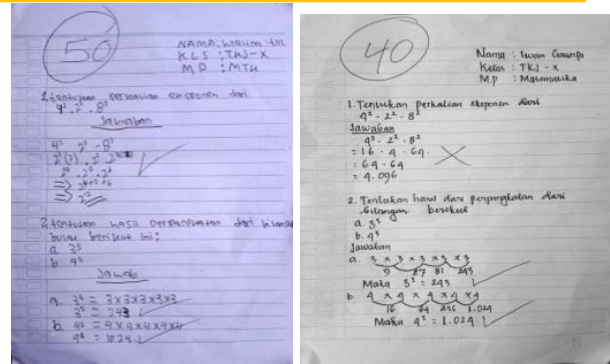 50
NAMA:
KLS : TKJ-X
MP : MTK
1. tentukan perkalian eksponen dari
4² . 2² . 8²
Jawaban
4² . 2² . 8²
2. tentukan hasil perpangkatan dari bilangan
bulat berikut ini;
a 3⁵
b 4⁵
Jawab
a. 3⁵ = 3x3x3x3x3
3⁵ = 243
b. 4⁵ = 4x4x4x4x4
4⁵ = 1024
40
Nama : Iwan
Kelas : TKJ - X
M.p : Matematika
1. Tentukan perkalian eksponen dari
4² . 2² . 8²
Jawaban
4² . 2² . 8²
= 16 . 4 . 64
= 64 . 64
= 4.096
2. Tentukan hasil dari perpangkatan dari
bilangan berikut
a. 3⁵
b. 4⁵
Jawaban
a. 3 x 3 x 3 x 3 x 3
9 27 81 243
Maka 3⁵ = 243
b. 4 x 4 x 4 x 4 x 4
16 64 256 1.024
Maka 4⁵ = 1.024